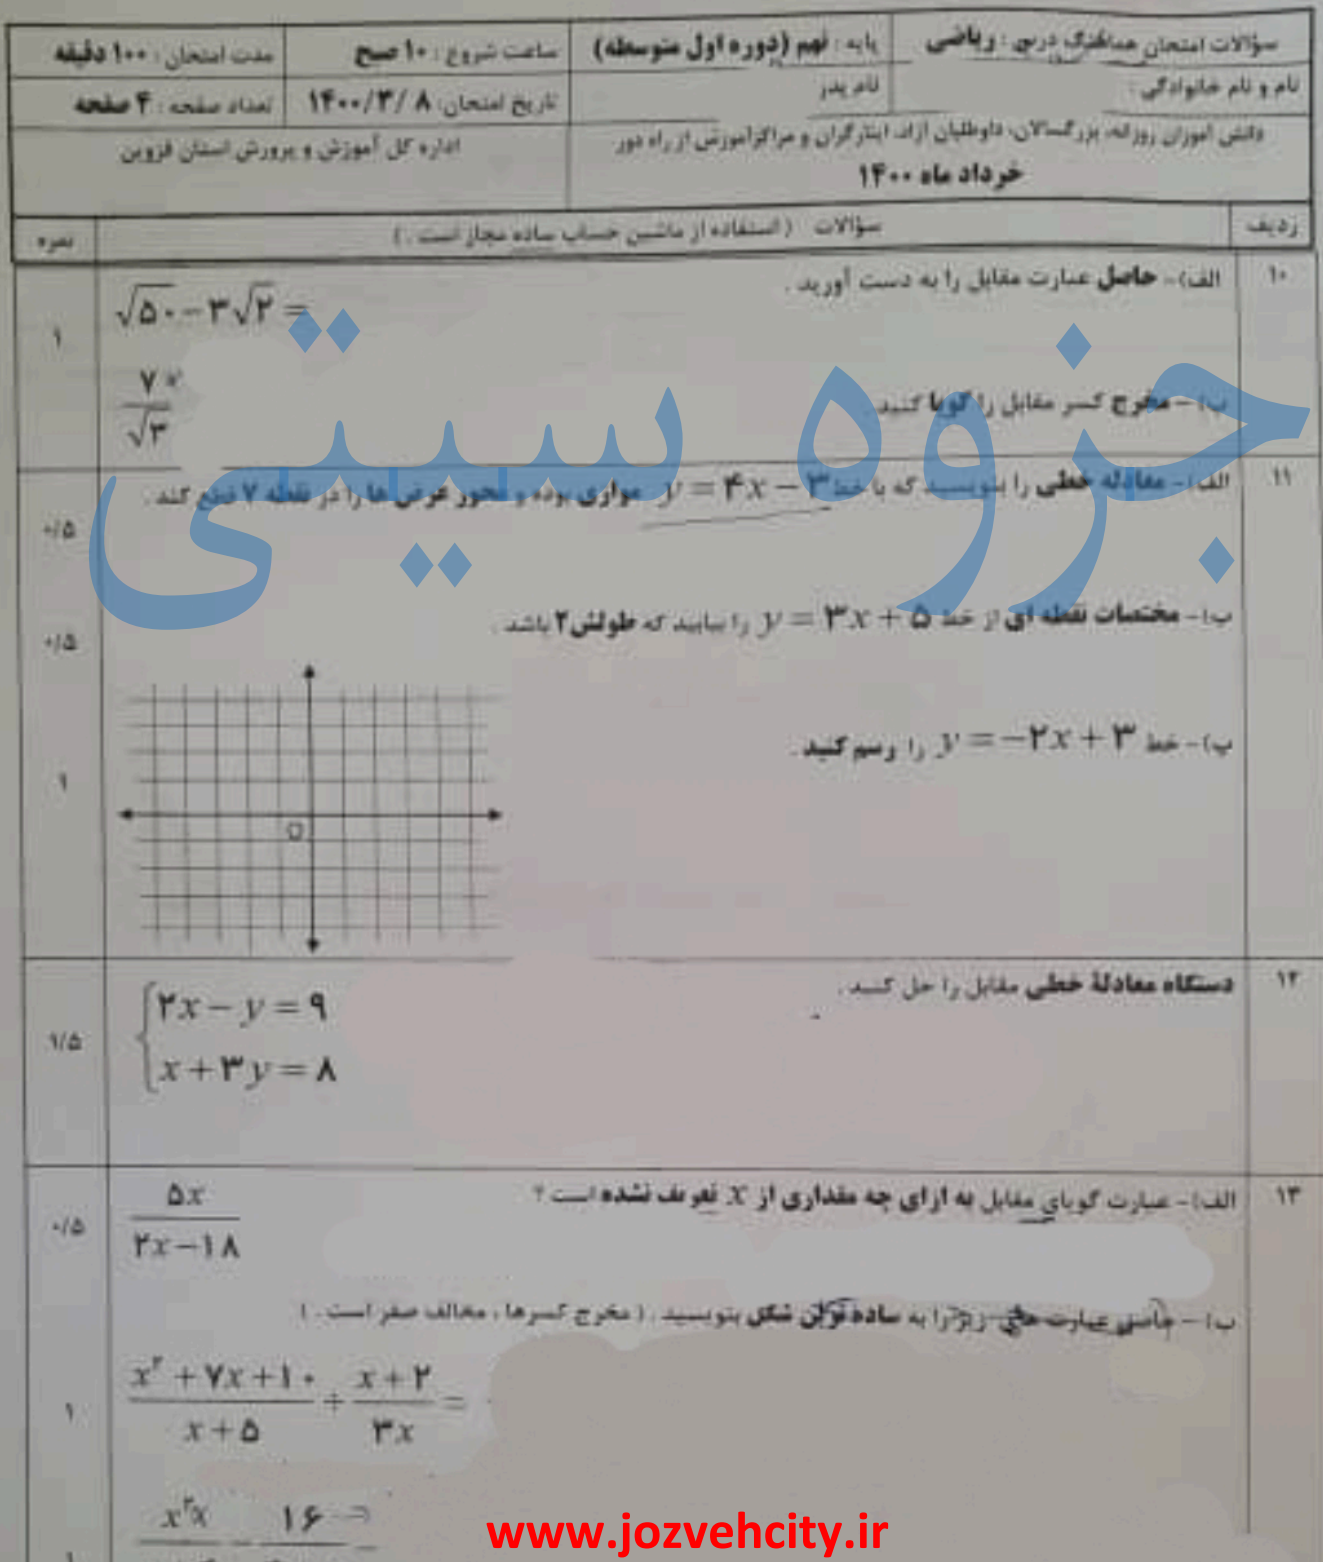 سؤالات امتحان هماهنگ درس : ریاضی
پایه : نهم (دوره اول متوسطه)
ساعت شروع : ۱۰ صبح
مدت امتحان : ۱۰۰ دقیقه
نام و نام خانوادگی :
نام پدر
تاریخ امتحان: ۸ /۱۴۰۰/۳
تعداد صفحه : ۴ صفحه
دانش آموزان روزانه، بزرگسالان، داوطلبان آزاد، ایثارگران و مراکز آموزش از راه دور
خرداد ماه ۱۴۰۰
اداره کل آموزش و پرورش استان قزوین
ردیف
سؤالات ( استفاده از ماشین حساب ساده مجاز است . )
نمره
۱۰
الف)- حاصل عبارت مقابل را به دست آورید .
√۵۰ − ۳√۲ =
۱
ب) – مخرج کسر مقابل را گویا کنید .
۷/√۳
جزوه سیتی
۱۱
الف)- معادله خطی را بنویسید که با خط y = ۴x − ۳ موازی بوده و محور عرض ها را در نقطه ۷ قطع کند .
۰/۵
ب)- مختصات نقطه ای از خط y = ۳x + ۵ را بیابید که طولش ۲ باشد .
۰/۵
پ)- خط y = −۲x + ۳ را رسم کنید .
۱
O
۱۲
دستگاه معادلهٔ خطی مقابل را حل کنید .
۲x − y = ۹
x + ۳y = ۸
۱/۵
۱۳
الف)- عبارت گویای مقابل به ازای چه مقداری از x تعریف نشده است ؟
۵x/(۲x − ۱۸)
۰/۵
ب) – حاصل عبارت های زیر را به ساده ترین شکل بنویسید . ( مخرج کسرها ، مخالف صفر است . )
(x² + ۷x + ۱۰)/(x + ۵) ÷ (x + ۲)/(۳x) =
۱
۱۶
www.jozvehcity.ir